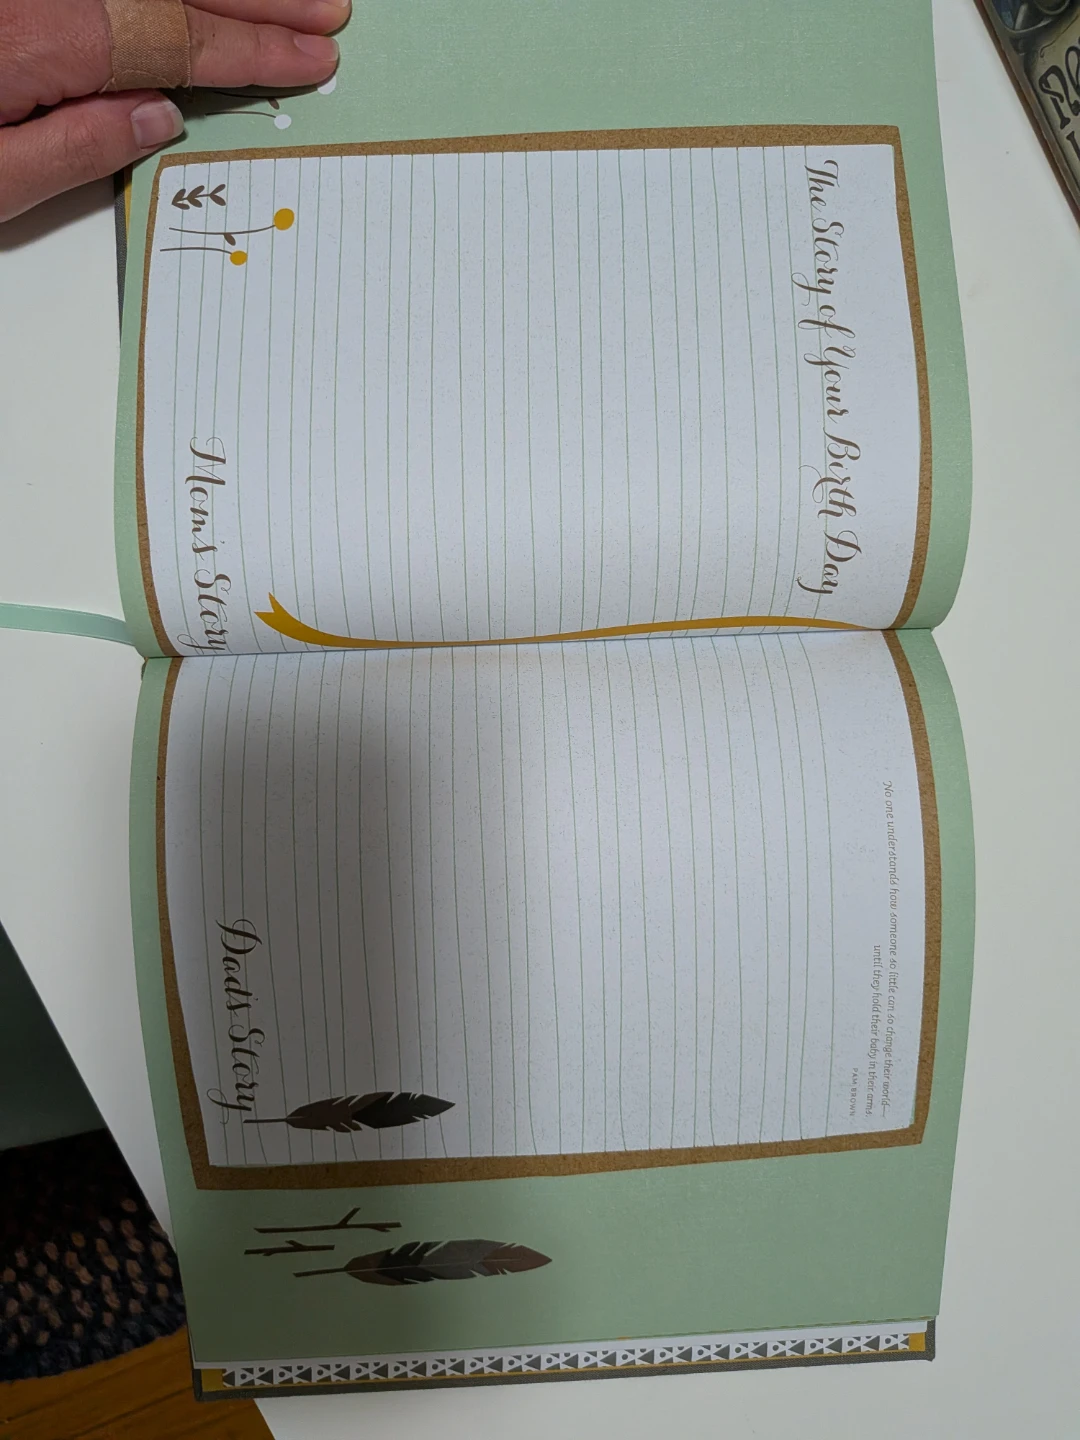 The Story of Your Birth Day
Mom's Story
"No one understands how someone so little can so change their world—
until they hold their baby in their arms.
PAM BROWN
Dad's Story